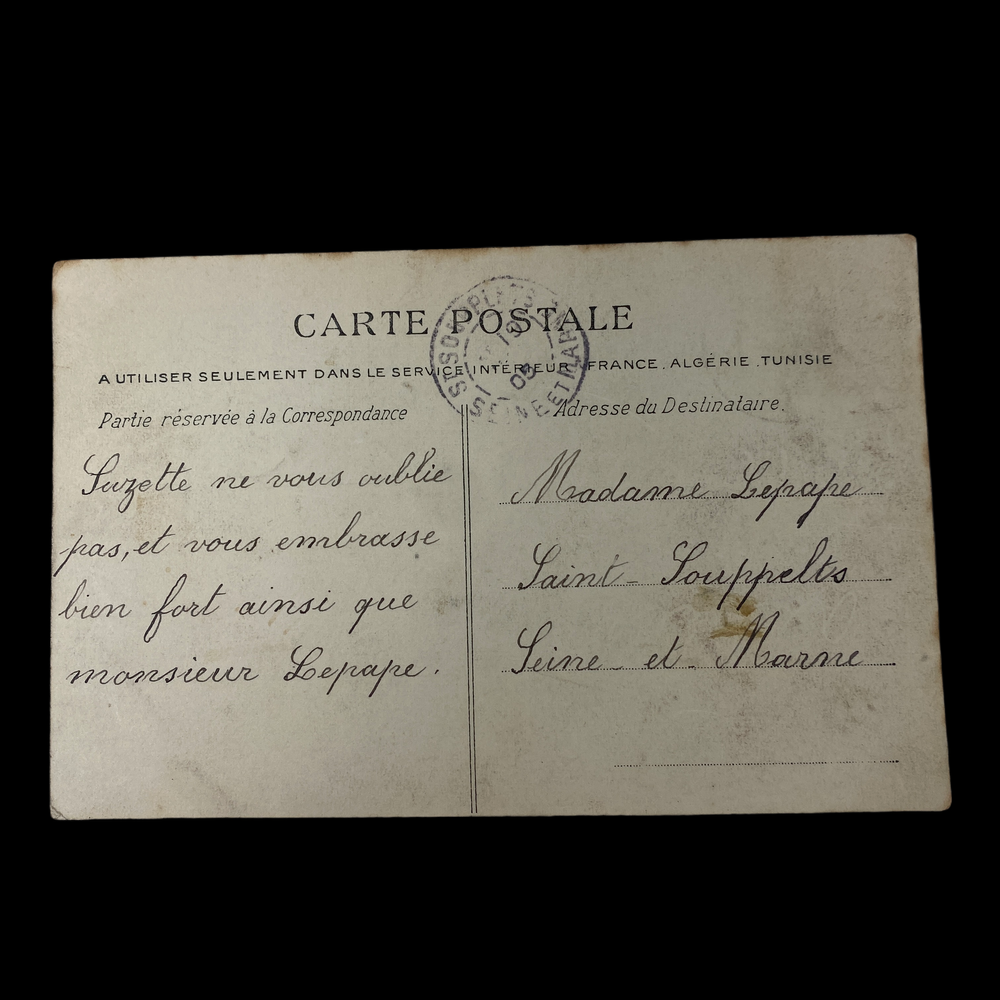 CARTE POSTALE
A UTILISER SEULEMENT DANS LE SERVICE INTÉRIEUR FRANCE. ALGÉRIE. TUNISIE
Partie réservée à la Correspondance
Suzette ne vous oublie
pas, et vous embrasse
bien fort ainsi que
monsieur Lepape.
Adresse du Destinataire.
Madame Lepape
Saint-Souppelts
Seine-et-Marne
SEINE ET MARNE
19
05